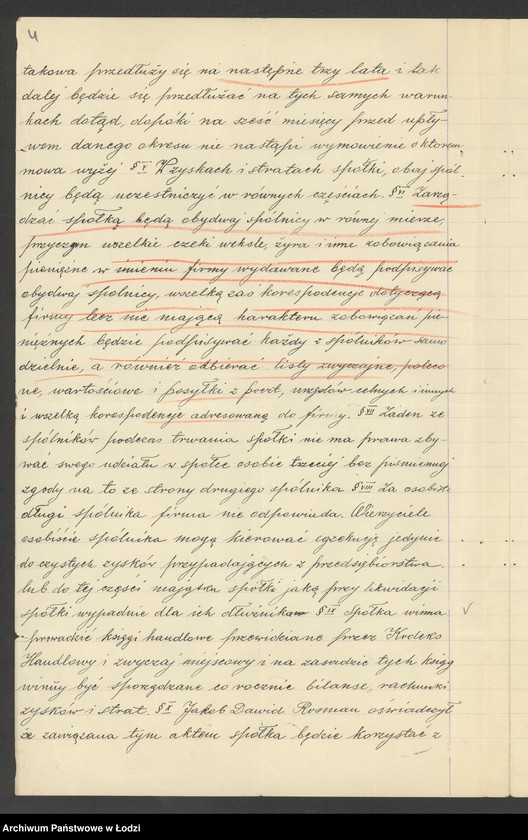 4
takowa przedłuży się na następne trzy lata i tak
dalej będzie się przedłużać na tych samych warun-
kach dotąd, dopóki na sześć miesięcy przed upły-
wem danego okresu nie nastąpi wymówienie o którem
mowa wyżej § V W zyskach i stratach spółki, obaj spól-
nicy będą uczestniczyć w równych częściach. § VI Zarzą-
dzać spółką będą obydwaj spólnicy w równej mierze,
przyczem wszelkie czeki weksle, żyra i inne zobowiązania
pieniężne w imieniu firmy wydawane będą podpisywać
obydwaj spólnicy, wszelką zaś korespodencję dotyczącą
firmy lecz nie mającą charakteru zobowiązań pie-
niężnych będzie podpisywać każdy z spólników samo
dzielnie, a również odbierać listy zwyczajne, poleco
ne, wartościowe i posyłki z poczt, urzędów celnych i innych
i wszelką korespodencję adresowaną do firmy. § VII Żaden ze
spólników podczas trwania spółki nie ma prawa zby-
wać swego udziału w spółce osobie trzeciej bez piśmiennej
zgody na to ze strony drugiego spólnika § VIII Za osobiste
długi spólnika firma nie odpowiada. Wierzyciele
osobiście spólnika mogą kierować egzekucję jedynie
do czystych zysków przypadających z przedsiębiorstwa
lub do tej części majątku spółki jaką przy likwidacji
spółki wypadnie dla ich dłużnika § IX Spółka winna
prowadzić księgi handlowe przewidziane przez Kodeks
Handlowy i zwyczaj miejscowy i na zasadzie tych ksiąg
winny być sporządzane co rocznie bilanse, rachunki
zysków i strat. § X Jakób Dawid Rosman oświadczył
że zawiązana tym aktem spółka będzie korzystać z
Archiwum Państwowe w Łodzi